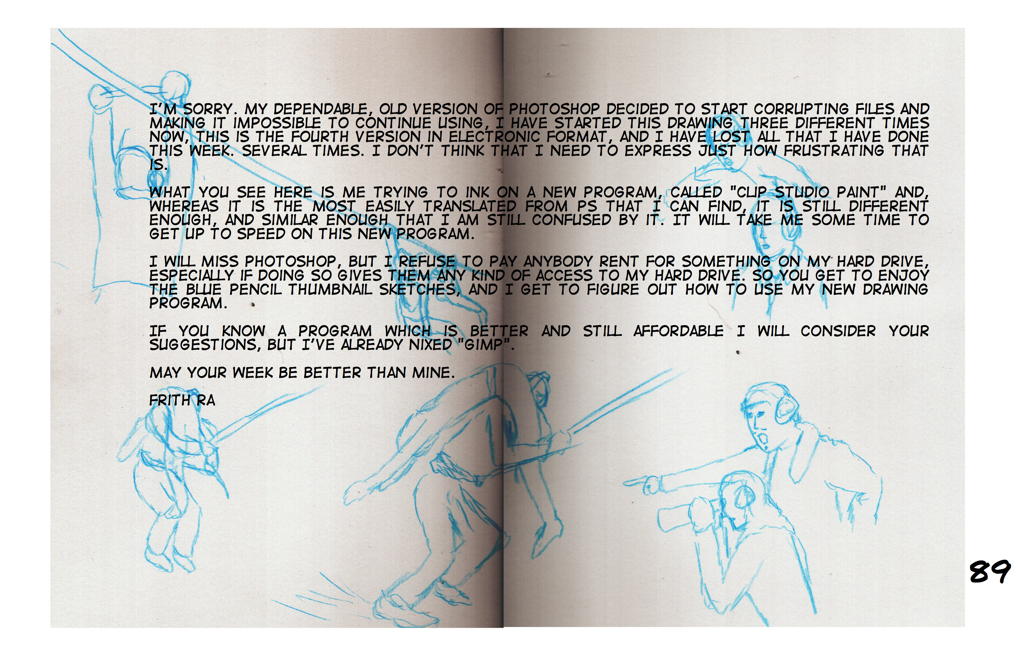 I'M SORRY. MY DEPENDABLE, OLD VERSION OF PHOTOSHOP DECIDED TO START CORRUPTING FILES AND
MAKING IT IMPOSSIBLE TO CONTINUE USING, I HAVE STARTED THIS DRAWING THREE DIFFERENT TIMES
NOW, THIS IS THE FOURTH VERSION IN ELECTRONIC FORMAT, AND I HAVE LOST ALL THAT I HAVE DONE
THIS WEEK. SEVERAL TIMES. I DON'T THINK THAT I NEED TO EXPRESS JUST HOW FRUSTRATING THAT
IS.
WHAT YOU SEE HERE IS ME TRYING TO INK ON A NEW PROGRAM, CALLED "CLIP STUDIO PAINT" AND,
WHEREAS IT IS THE MOST EASILY TRANSLATED FROM PS THAT I CAN FIND, IT IS STILL DIFFERENT
ENOUGH, AND SIMILAR ENOUGH THAT I AM STILL CONFUSED BY IT. IT WILL TAKE ME SOME TIME TO
GET UP TO SPEED ON THIS NEW PROGRAM.
I WILL MISS PHOTOSHOP, BUT I REFUSE TO PAY ANYBODY RENT FOR SOMETHING ON MY HARD DRIVE,
ESPECIALLY IF DOING SO GIVES THEM ANY KIND OF ACCESS TO MY HARD DRIVE. SO YOU GET TO ENJOY
THE BLUE PENCIL THUMBNAIL SKETCHES, AND I GET TO FIGURE OUT HOW TO USE MY NEW DRAWING
PROGRAM.
IF YOU KNOW A PROGRAM WHICH IS BETTER AND STILL AFFORDABLE I WILL CONSIDER YOUR
SUGGESTIONS, BUT I'VE ALREADY NIXED "GIMP".
MAY YOUR WEEK BE BETTER THAN MINE.
FRITH RA
89